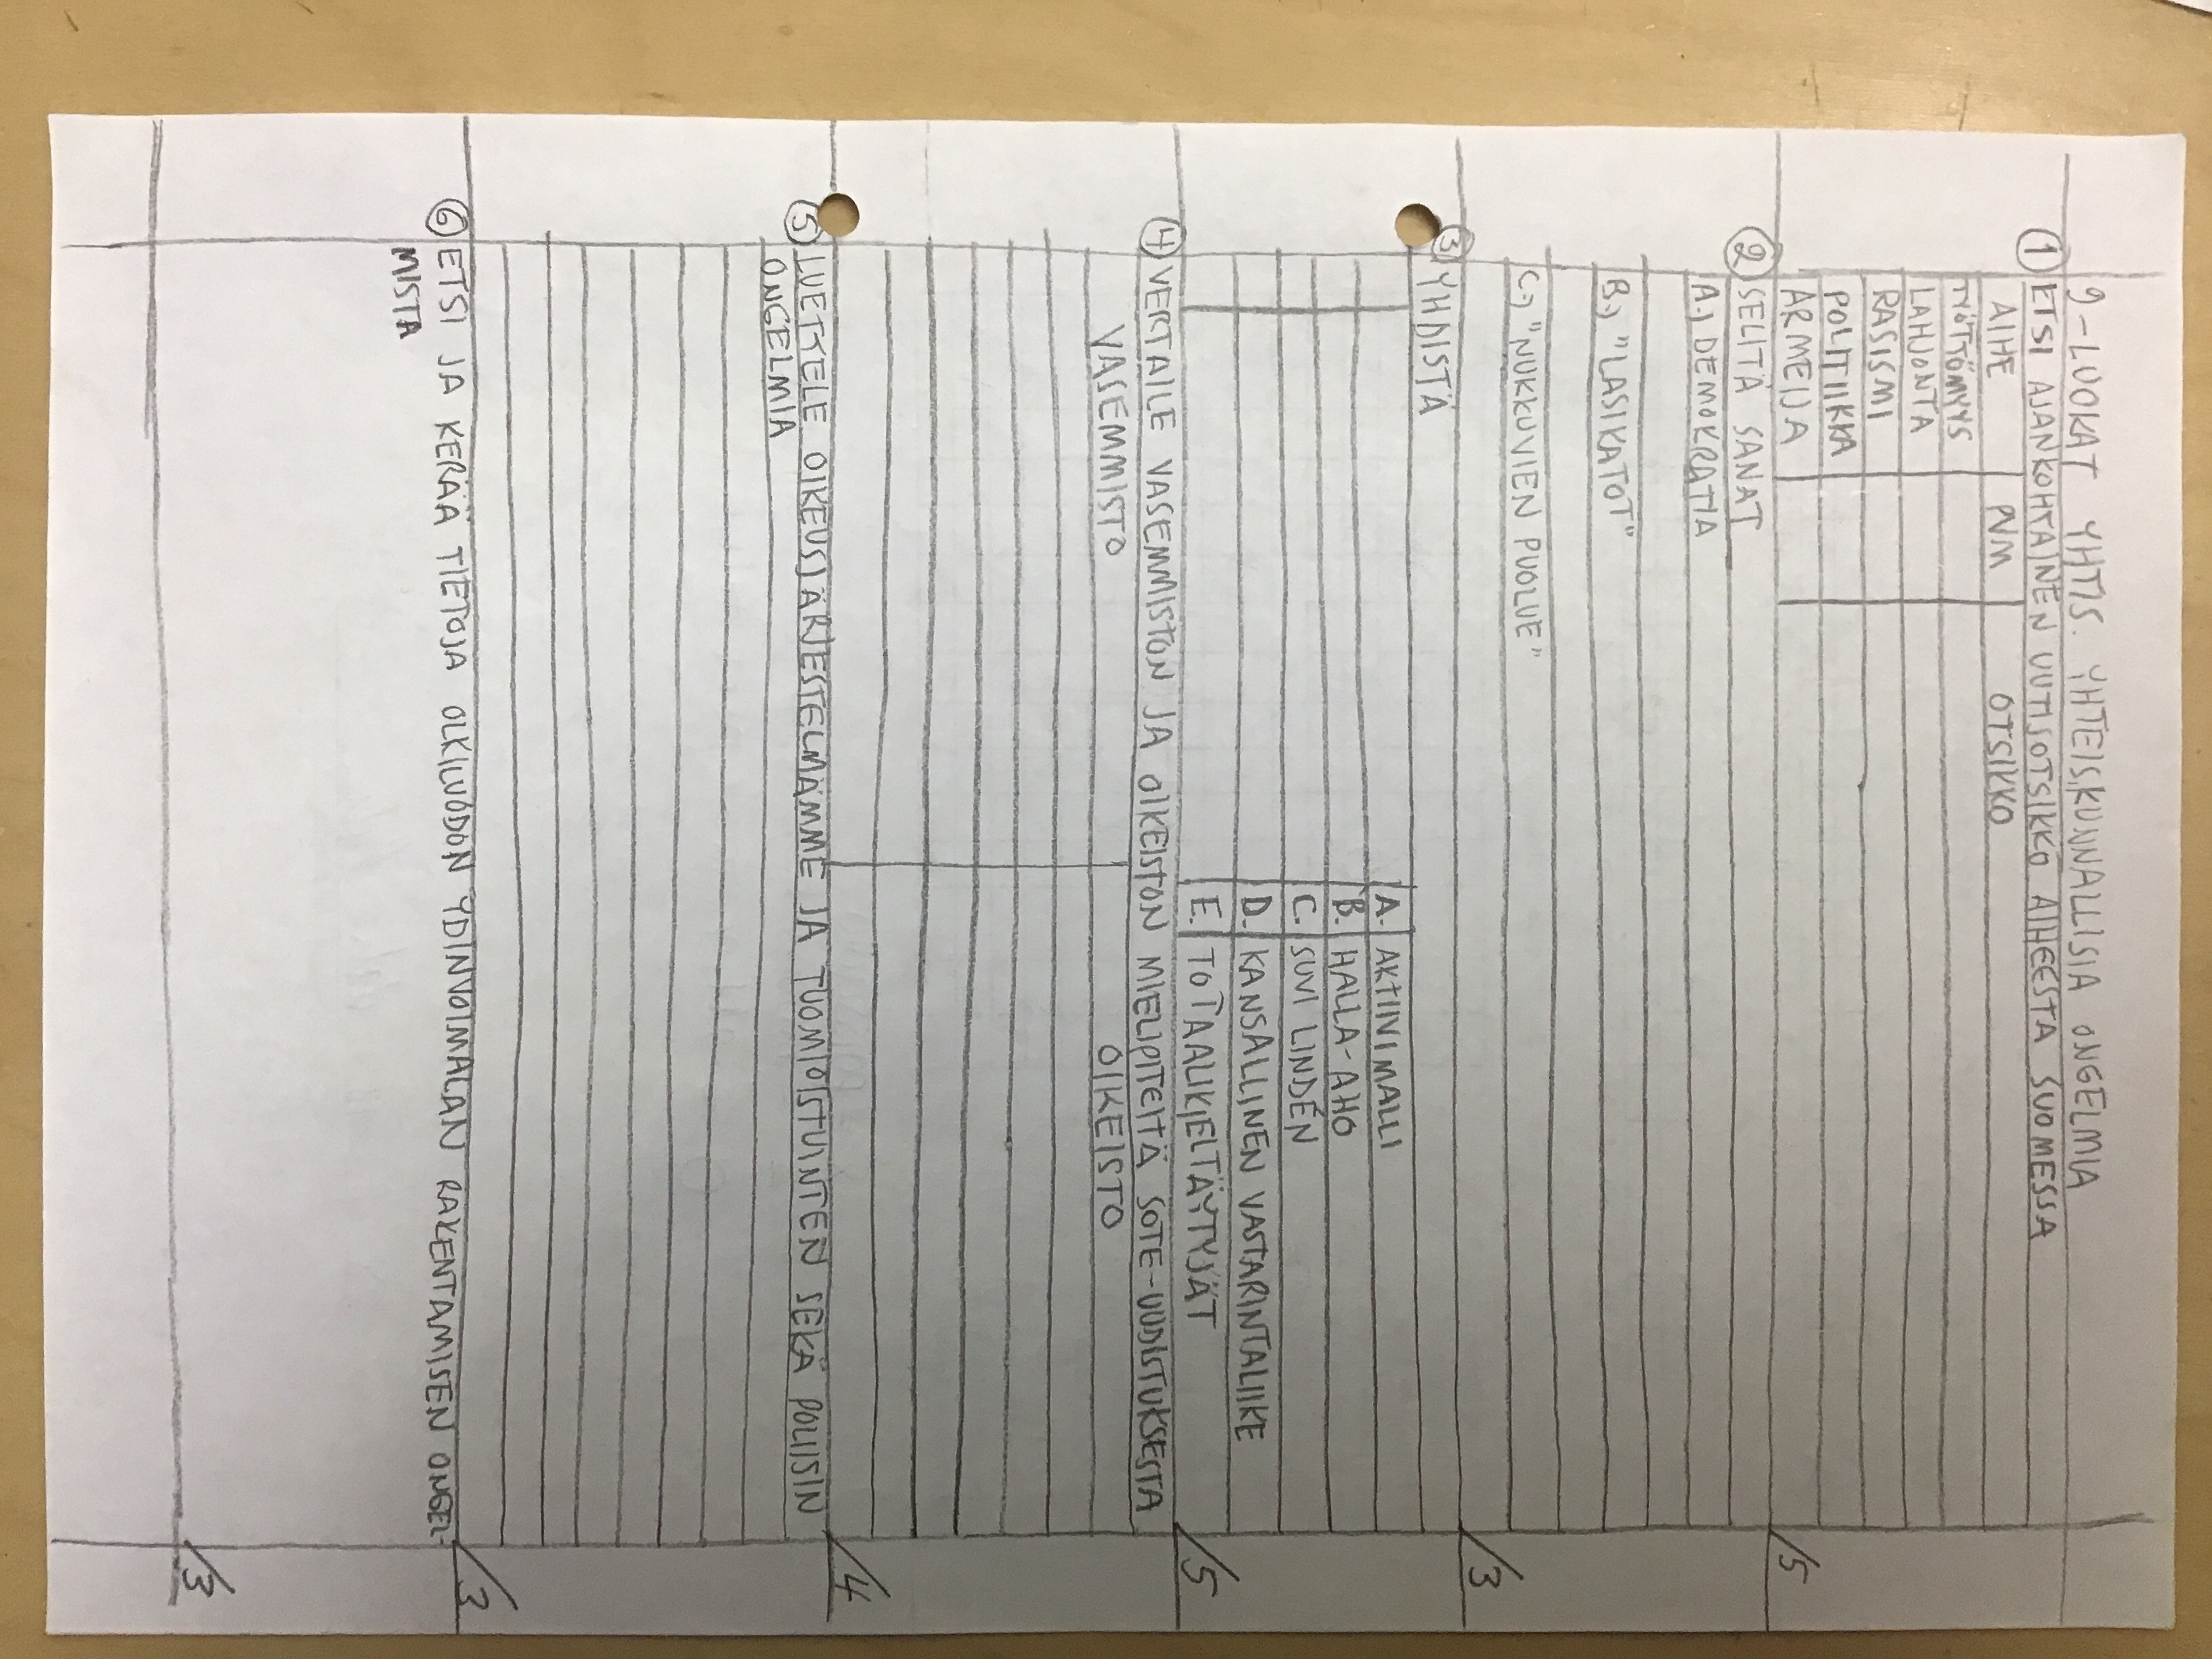 9-LUOKAT YHTIS. YHTEISKUNNALLISIA ONGELMIA
① ETSI AJANKOHTAINEN UUTISOTSIKKO AIHEESTA SUOMESSA
AIHE PVM OTSIKKO
TYÖTTÖMYYS
LAHJONTA
RASISMI
POLITIIKKA
ARMEIJA
/5
② SELITÄ SANAT
A.) DEMOKRATIA
B.) "LASIKATOT"
C.) "NUKKUVIEN PUOLUE"
/3
③ YHDISTÄ
A. AKTIIVIMALLI
B. HALLA-AHO
C. SUVI LINDÉN
D. KANSALLINEN VASTARINTALIIKE
E. TOTAALIKIELTÄYTYJÄT
/5
④ VERTAILE VASEMMISTON JA OIKEISTON MIELIPITEITÄ SOTE-UUDISTUKSESTA
VASEMMISTO OIKEISTO
/4
⑤ LUETTELE OIKEUSJÄRJESTELMÄMME JA TUOMIOISTUINTEN SEKÄ POLIISIN
ONGELMIA
/3
⑥ ETSI JA KERÄÄ TIETOJA OLKILUODON YDINVOIMALAN RAKENTAMISEN ONGEL-
MISTA
/3